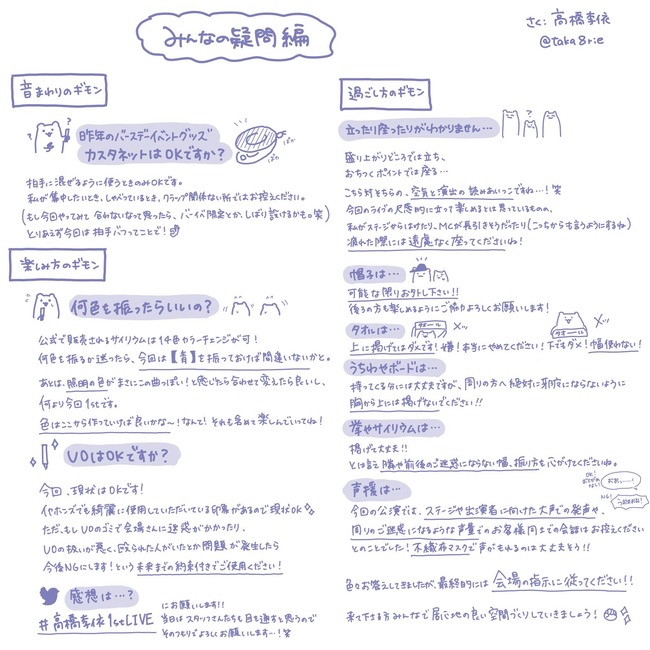 みんなの疑問編
さく：高橋李依
@taka8rie
音まわりのギモン
昨年のバースデーイベントグッズ
カスタネットはOKですか？
ぱか
ぱか
拍手に混ぜるように使うときのみOKです。
私が集中したいとき、しゃべっているとき、クラップ関係ない所ではお控えください。
(もし今回やってみて合わないなって思ったら、バーイベ限定とか、しばり設けるかも。笑)
とりあえず今回は拍手バフってことで！
楽しみ方のギモン
何色を振ったらいいの？
公式で販売されるサイリウムは14色カラーチェンジが可！
何色を振るか迷ったら、今回は【青】を振っておけば間違いないかと。
あとは、照明の色がまさにこの曲っぽい！と感じたら合わせて変えたら良いし、
何より今回1stです。
色はここから作っていけば良いかな〜！なんて！それも含めて楽しんでいてね！
UOはOKですか？
今回、現状はOKです！
イヤホンズでも綺麗に使用していただいている印象があるので現状OK
ただ、もしUOのゴミで会場さんに迷惑がかかったり、
UOの扱いが悪く、殴られた人がいたとか問題が発生したら
今後NGにします！という未来までの約束付きでご使用ください！
感想は…？
#高橋李依1stLIVE
にお願いします!!
当日はスタッフさんたちも目を通すと思うので
そのつもりでよろしくお願いします…！笑
過ごし方のギモン
立ったり座ったりがわかりません…
?
盛り上がりどころでは立ち、
おちつくポイントでは座る…
こちらもそちらの、空気と演出の読みあいっこですね…！笑
今回のライブの尺感的に立って楽しめるとは思っているものの、
私がステージからはけたり、MCが長引きそうだったり(こっちからも言うようにするね)
疲れた際には遠慮なく座ってくださいね！
帽子は…
可能な限りお外し下さい!!
後ろの方も楽しめるようにご協力よろしくお願いします！
タオルは…
タオル
タオル
上に掲げてはダメです！嫌！本当にやめてください！下でもダメ！幅使わない！
うちわやボードは…
持ってくる分には大丈夫ですが、周りの方へ絶対に邪魔にならないように
胸から上には掲げないでください!!
拳やサイリウムは…
掲げて大丈夫!!
とは言え隣や前後のご迷惑にならない幅、振り方を心がけてくださいね。
声援は…
今回の公演では、ステージや出演者に向けた大声での発声や、
周りのご迷惑になるような声量でのお客様同士での会話はお控えください
とのことでした！不織布マスクで声がもれるのは大丈夫そう!!
色々お答えしてきましたが、最終的には会場の指示に従ってください!!
来て下さる方みんなで居心地の良い空間づくりしていきましょう！